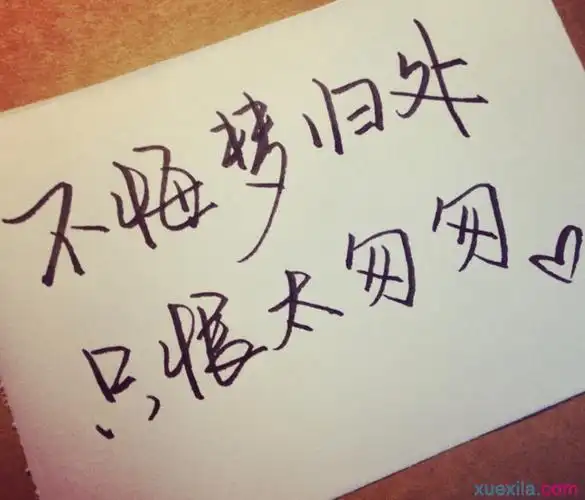 不悔梦归处
只恨太匆匆
xuexila.com